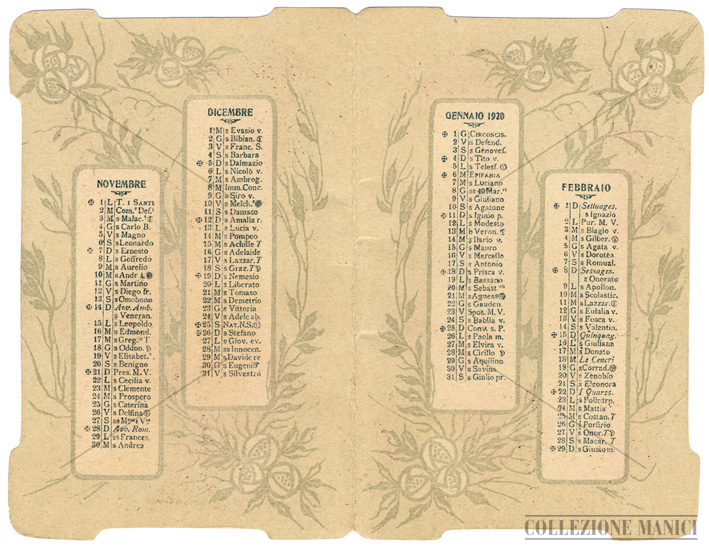 NOVEMBRE
✠ 1 L T. i SANTI
2 M Com.e Def.i
3 M s Malac.
4 G s Carlo B.
5 V s Magno
6 S s Leonardo
✠ 7 D s Ernesto
8 L s Goffredo
9 M s Aurelio
10 M s Andr A.
11 G s Martino
12 V s Diego fr.
13 S s Omobono
✠ 14 D Avv. Amb.
s Veneran.
15 L s Leopoldo
16 M s Edmend.
17 M s Greg. T
18 G s Oddon.
19 V s Elisabet.
20 S s Benigno
✠ 21 D Pres. M. V.
22 L s Cecilia v.
23 M s Clemente
24 M s Prospero
25 G s Caterina
26 V s Delfina
27 S ss
✠ 28 D Avv. Rom.
29 L s Frances.
30 M s Andrea
DICEMBRE
1 M s Evasio v.
2 G s Bibian.
3 V s Franc. S.
4 S s Barbara
✠ 5 D s Dalmazio
6 L s Nicolò v.
7 M s Ambrog.
8 M Imm. Conc.
9 G s Siro v.
10 V s Melch.
11 S s Damaso
✠ 12 D s Amalia r.
13 L s Lucia v.
14 M s Pompeo
15 M s Achille T
16 G s Adelaide
17 V s Lazzar. T
18 S s Graz. T
✠ 19 D s Nemesio
20 L s Liberato
21 M s Tomaso
22 M s Demetrio
23 G s Vittoria
24 V s Adele ab.
✠ 25 S NAT. N.S.
✠ 26 D s Stefano
27 L s Giov. ev.
28 M s Innocen.
29 M s Davide re
30 G s Eugenio
31 V s Silvestro
GENNAIO 1920
✠ 1 G CIRCONCIS.
2 V s Defend.
3 S s Genovef.
✠ 4 D s Tito v.
5 L s Telesf.
✠ 6 M EPIFANIA
7 M s Luciano
8 G ss 40 Mar.
9 V s Giuliano
10 S s Agatone
✠ 11 D s Iginio p.
12 L s Modesto
13 M b Veron.
14 M s Ilario v.
15 G s Mauro
16 V s Marcello
17 S s Antonio
✠ 18 D s Prisca v.
19 L s Bassano
20 M s Sebast.
21 M s Agnese
22 G s Gauden.
23 V Spos. M. V.
24 S s Babila v.
✠ 25 D Conv. s P.
26 L s Paola m.
27 M s Elvira v.
28 M s Cirillo
29 G s Aquilino
30 V s Savina
31 S s Giulio pr.
FEBBRAIO
✠ 1 D Settuages.
s Ignazio
2 L Pur. M. V.
3 M s Biagio v.
4 M s Gilber.
5 G s Agata v.
6 V s Dorotea
7 S s Romual.
✠ 8 D Sessages.
s Onorato
9 L s Apollon.
10 M s Scolastic.
11 M s Lazzar.
12 G s Eulalia v.
13 V s Fosca v.
14 S s Valentin.
✠ 15 D Quinquag.
16 L s Giuliana
17 M s Donato
18 M Le Ceneri
19 G s Corrad.
20 V s Zenobio
21 S s Eleonora
✠ 22 D I Quares.
23 L s Policarp.
24 M s Mattia
25 M s Costan. T
26 G s Porfirio
27 V s Onor. T
28 S s Macar. T
✠ 29 D s Giustom.
COLLEZIONE MANICI